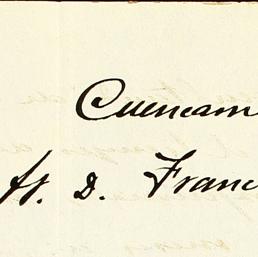 Cuencam
Sr. D. Franc